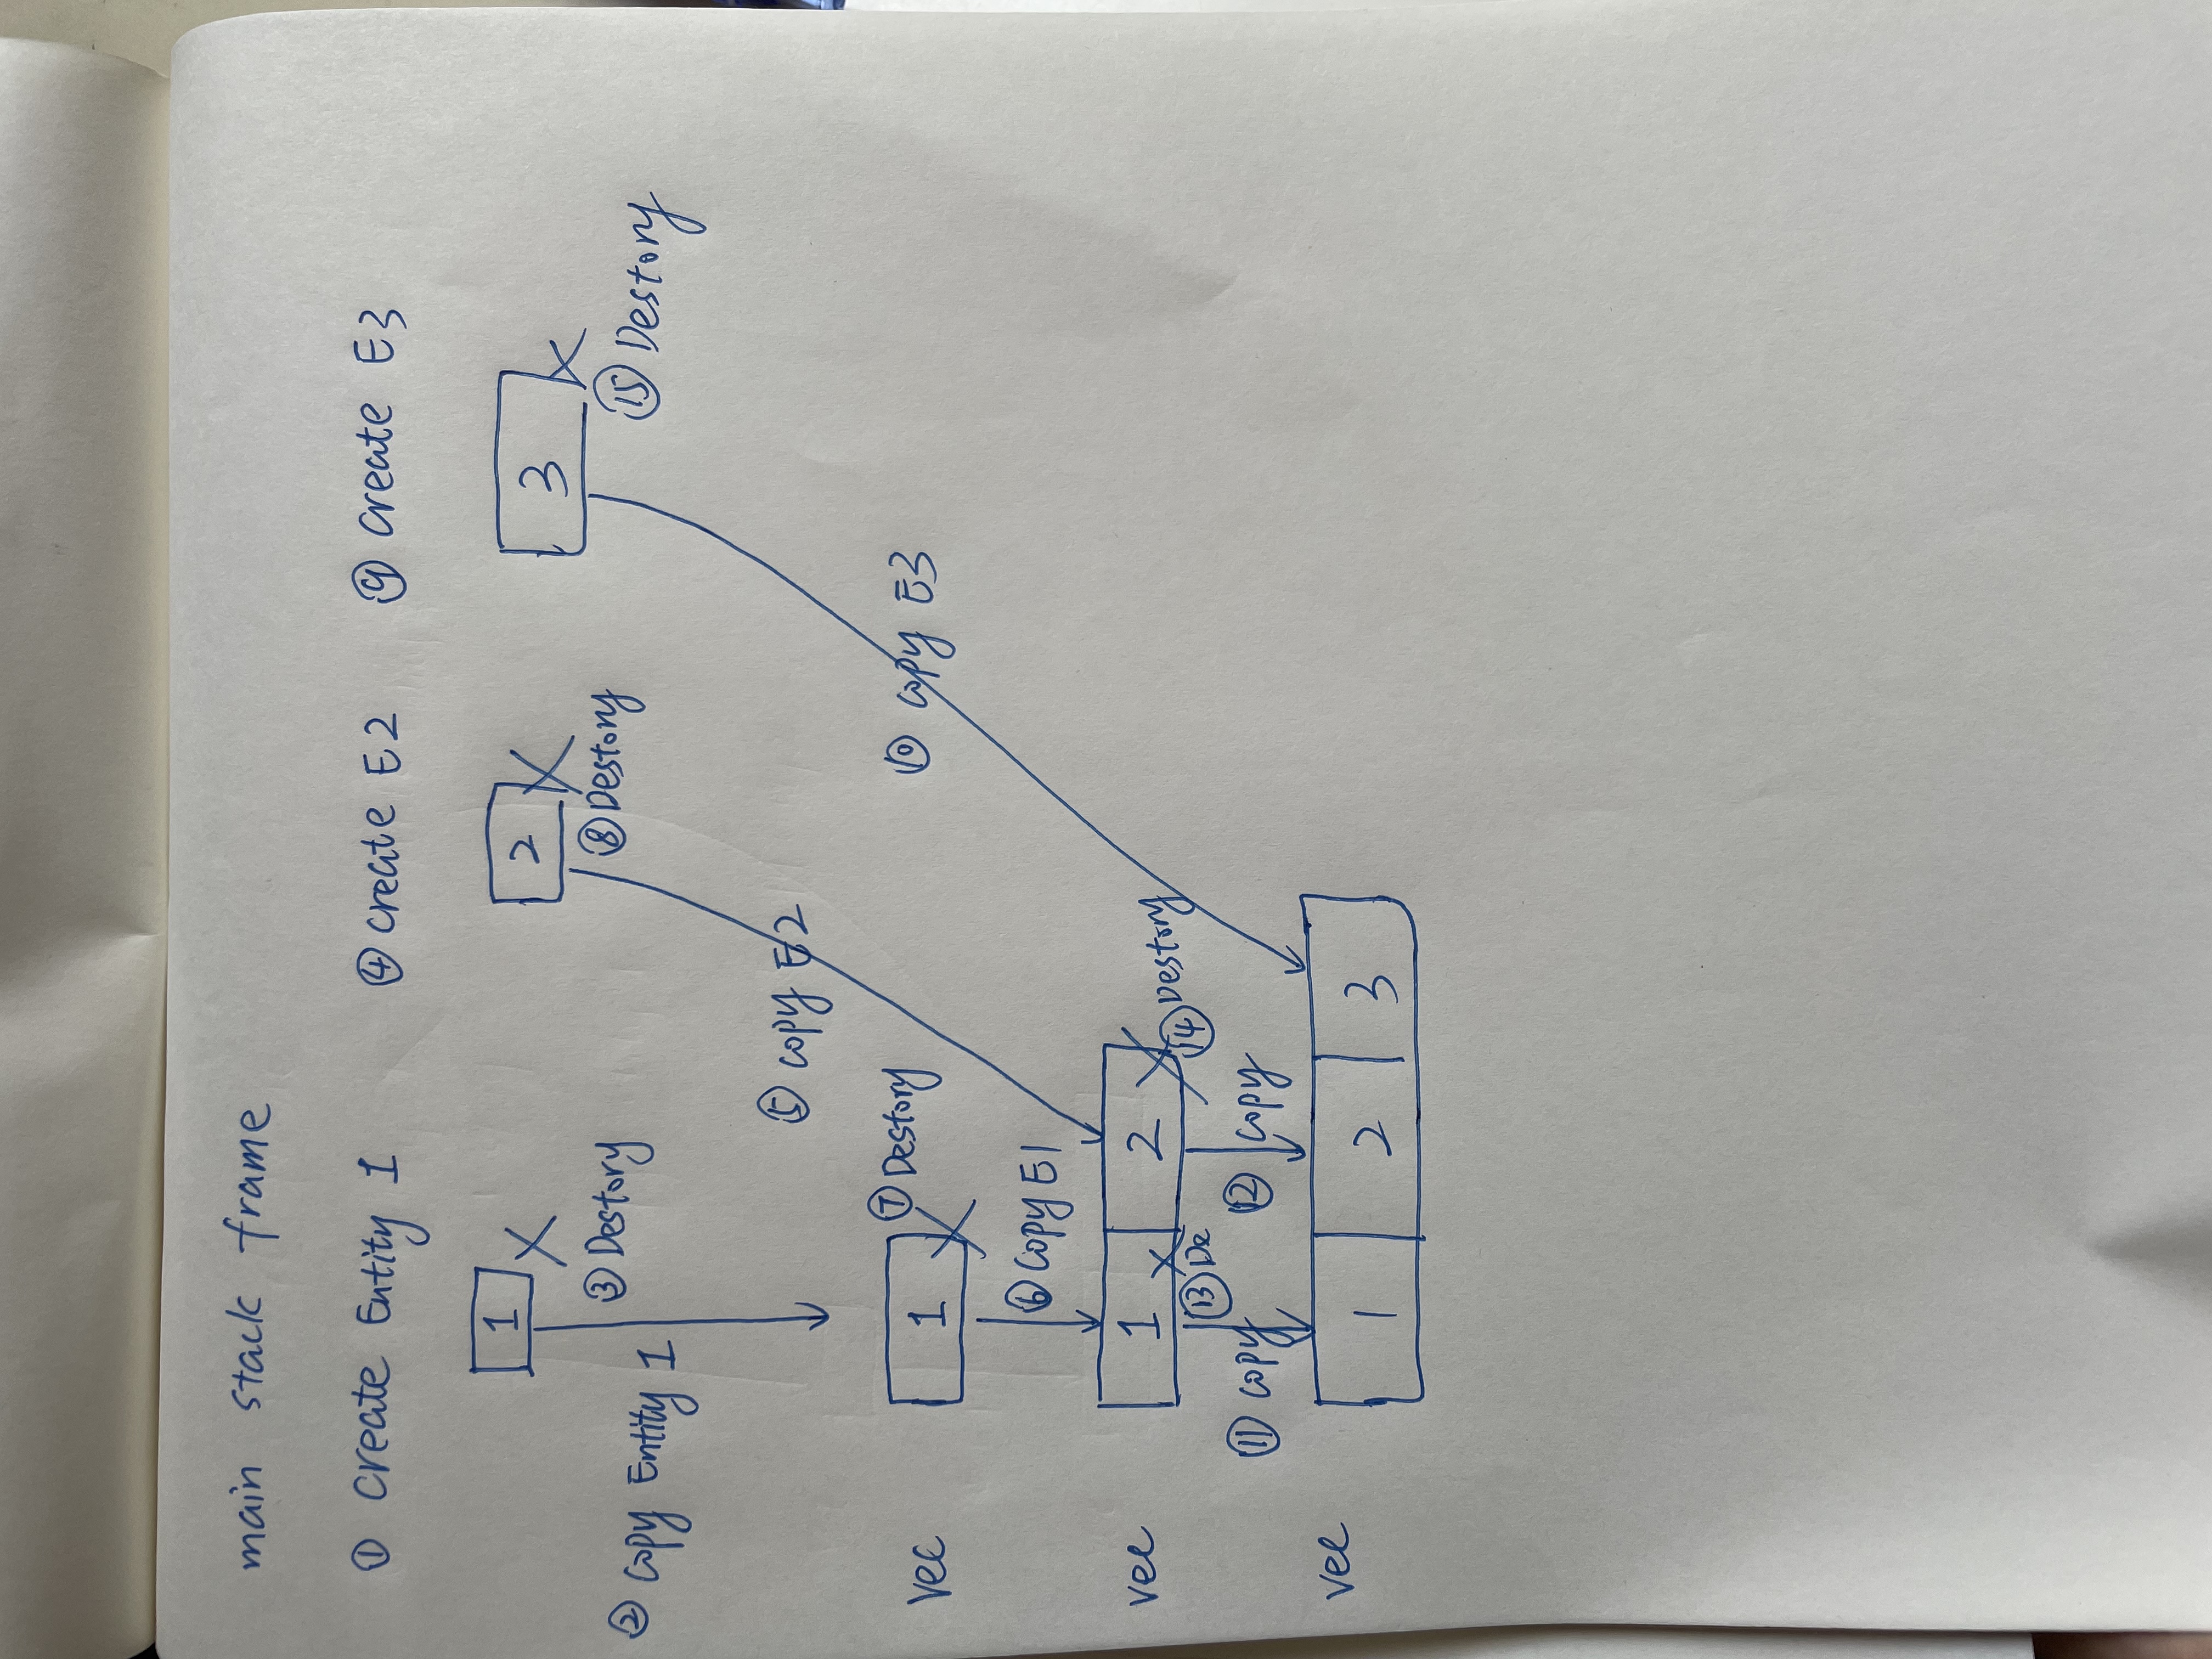 main stack frame
① Create Entity 1 ④ create E2 ⑨ create E3
1 2 3
③ Destory ⑧ Destory ⑮ Destory
② Copy Entity 1
⑤ copy E2
⑦ Destory
vec 1 ⑩ copy E3
⑥ Copy E1
vec 1 2
⑬ De ⑭ Destory
⑪ copy ⑫ copy
vec 1 2 3